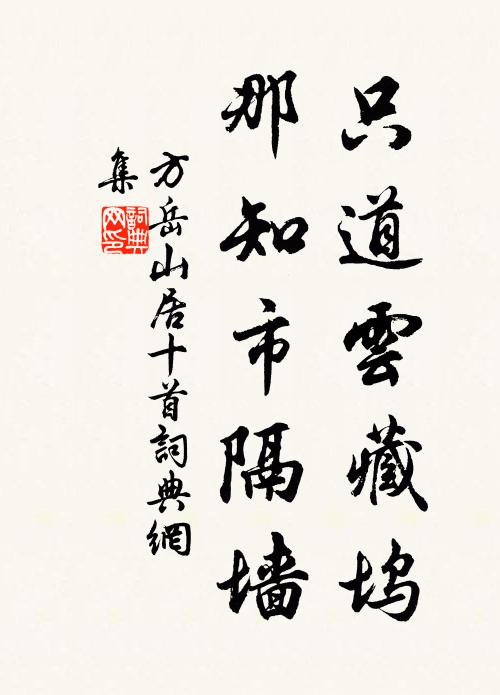 只道雲藏坞
那知市隔墙
方岳山居十首詞典網
集
詞典网印